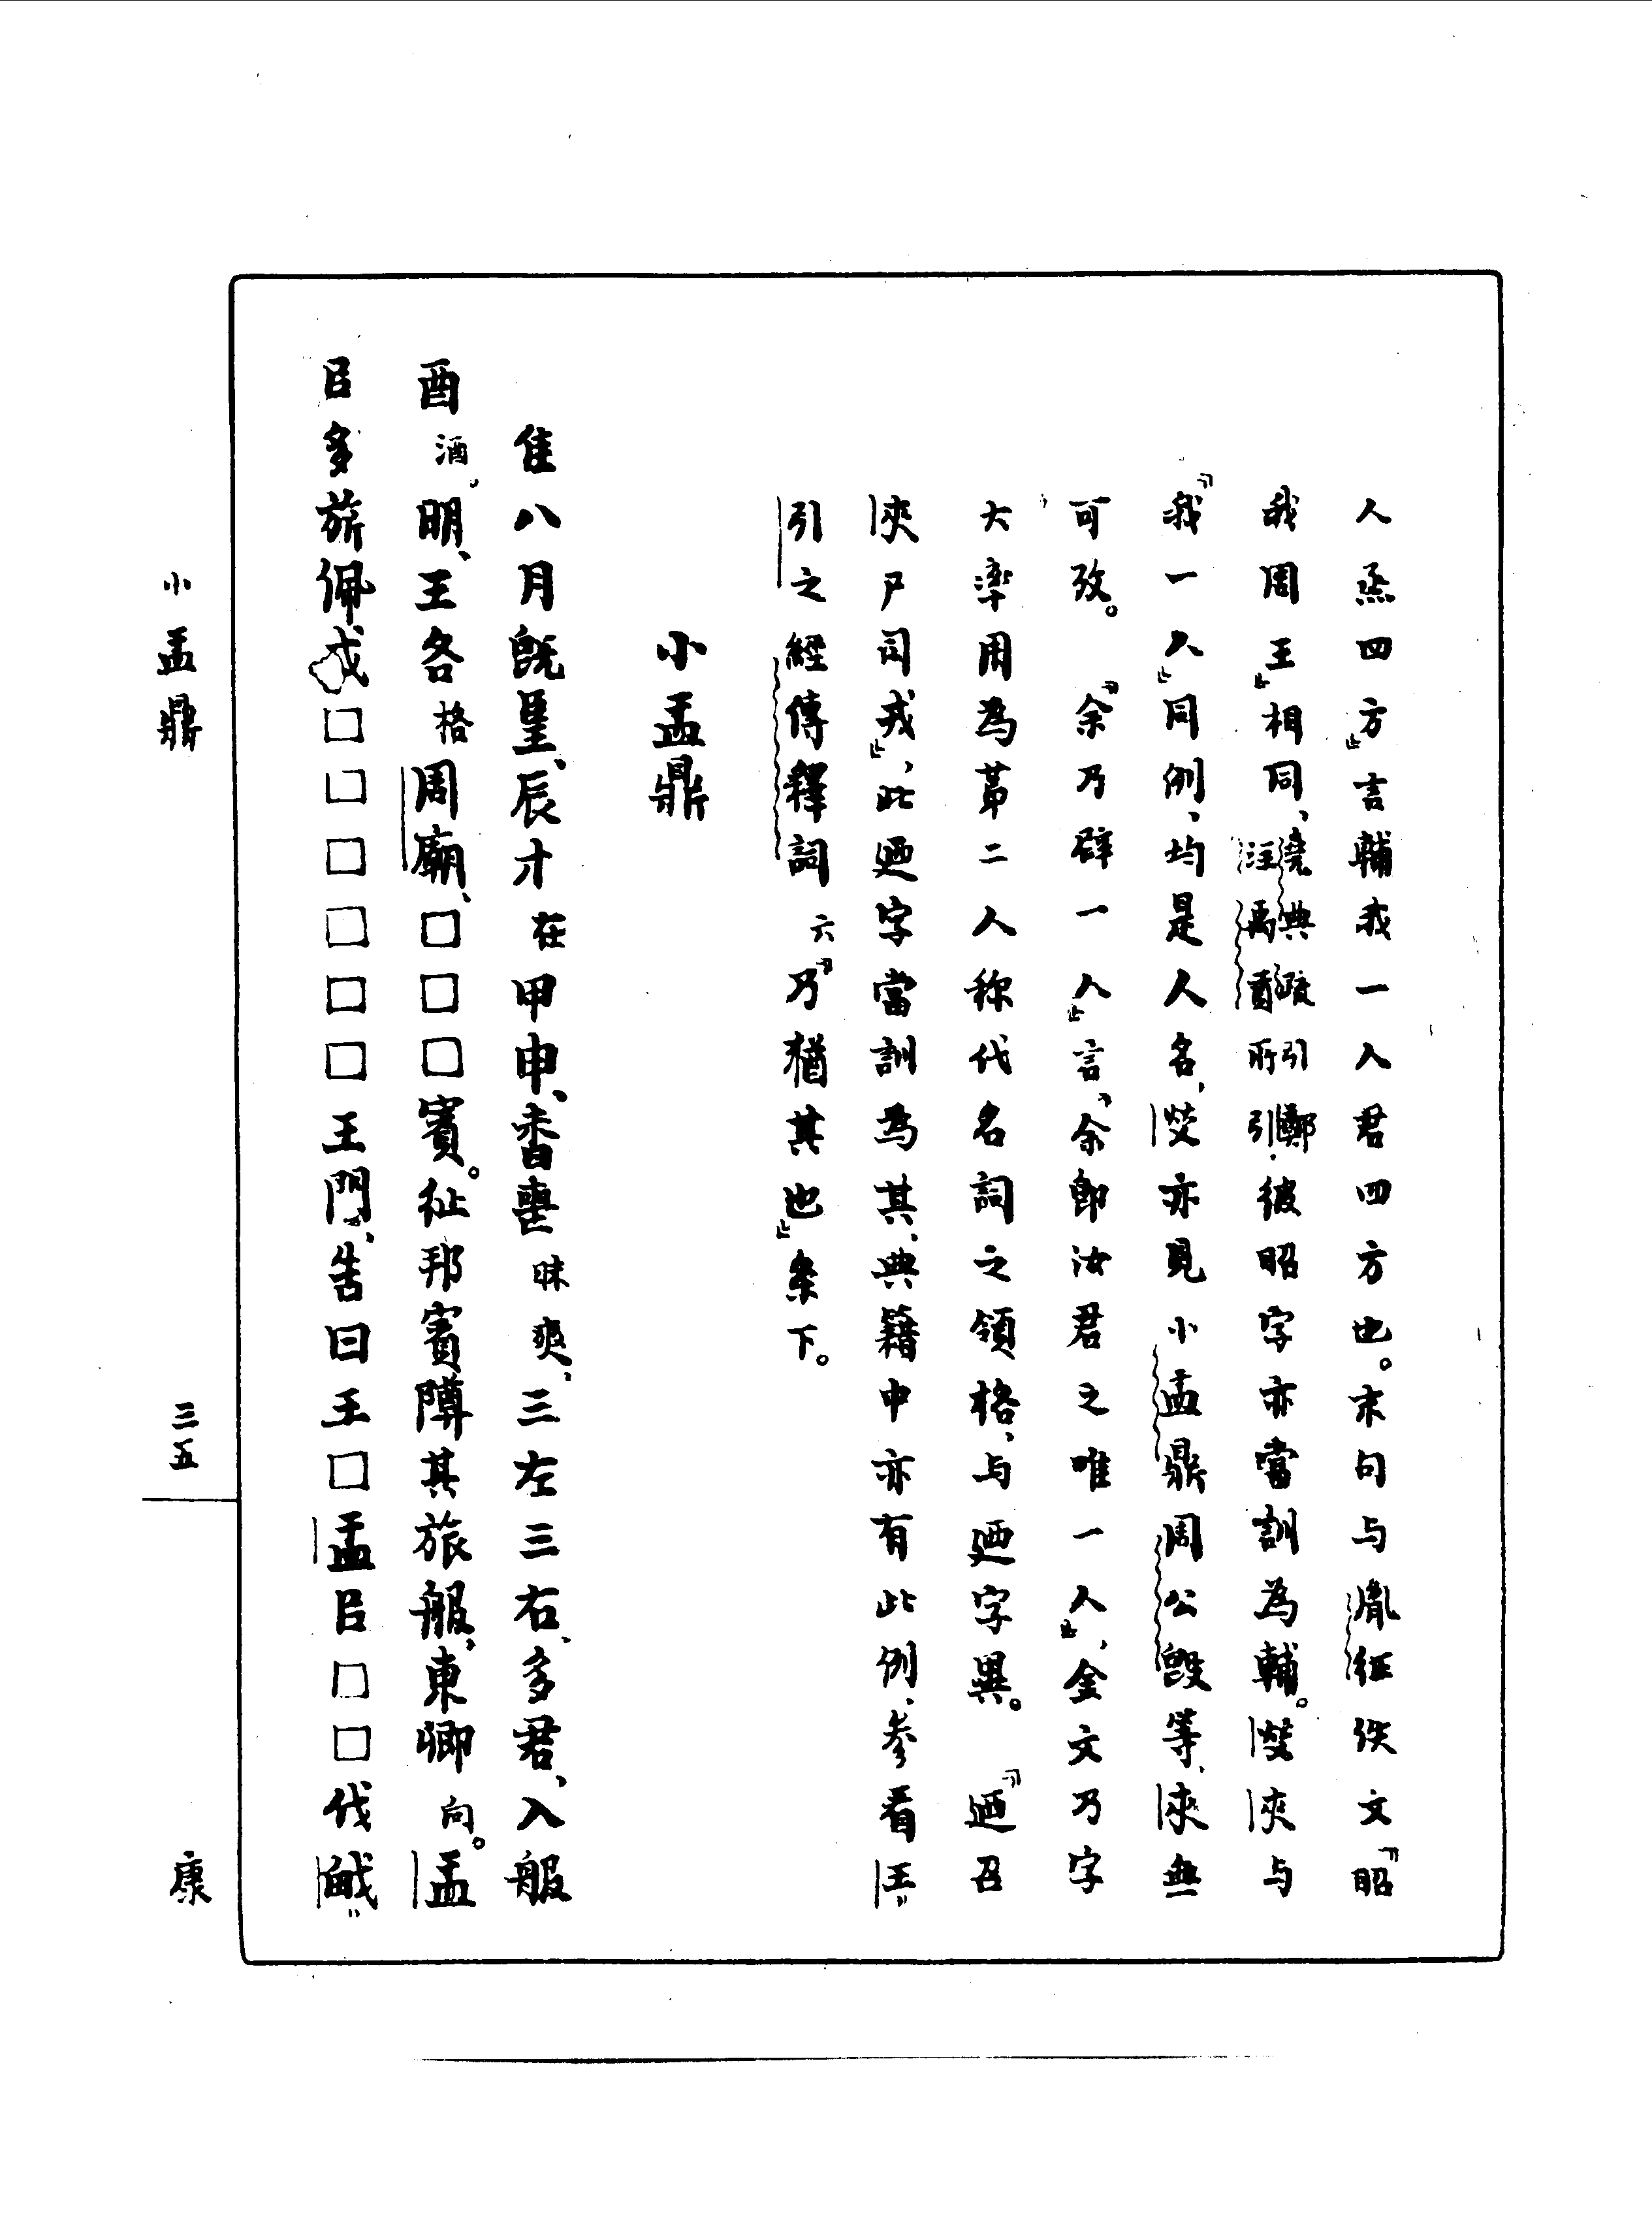 人烝四方」言輔我一人君四方也。末句与胤征佚文「昭
我周王」相同、堯典疏引鄭注禹貢所引.彼昭字亦當訓為輔。焂㚒与
「我一人」同例、均是人名、焂亦見小盂鼎周公𣪘等、㚒無
可攷。「余乃辟一人」言、余即汝君之唯一人」、金文乃字
大率用為苐二人称代名詞之領格、与廼字異。「廼召
㚒尸司戎」、此廼字當訓為其、典籍中亦有此例、參看王
引之經傳釋詞六「乃猶其也」条下。
小盂鼎
隹八月既朢、辰才在甲申、昧爽、三左三右、多君、入服
酉酒。明、王各格周廟、□□□賓。征邦賓障其旅服、東卿向。盂
㠯多旂佩□□□□□□王門、告曰王□盂㠯□□伐
小盂鼎
三五
康